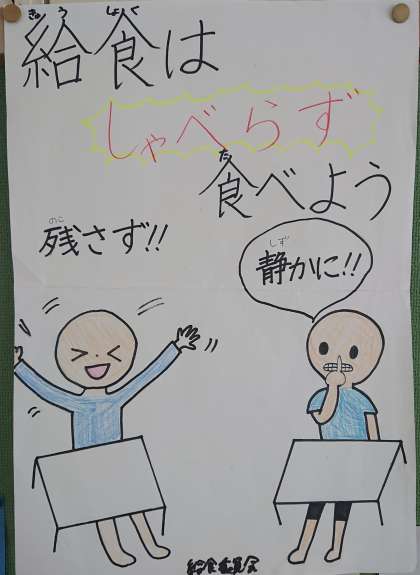 きゅう しょく
給食は
しゃべらず
た
食べよう
のこ
残さず!!
しず
静かに!!
給食委員会